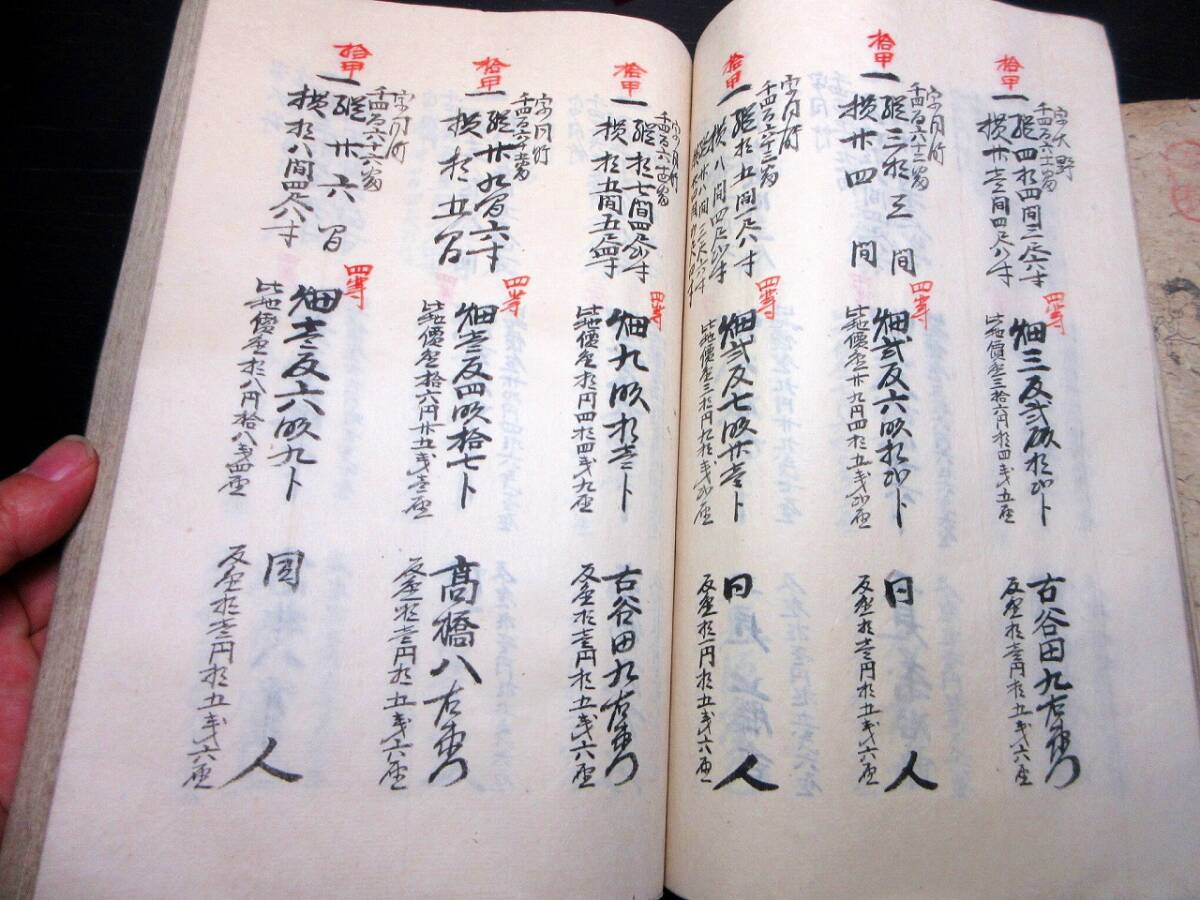 拾甲
字天野
千四百六十一番
一
縦四拾四間三尺六寸
横廿壱間四尺八寸
四等
畑三反弐畝拾歩
此地價金三拾六円拾四戋五厘
古谷田九右衛門
反金拾壱円拾五戋六厘
拾甲
字同所
千四百六十二番
一
縦三拾三間
横廿四間
四等
畑弐反六畝拾歩
此地價金廿九円四拾五戋
同人
反金拾壱円拾五戋六厘
拾甲
字同所
千四百六十三番
一
縦拾五間一尺八寸
横八間四尺
四等
畑弐反七畝廿壱歩
此地價金三拾円九拾戋
同人
反金拾一円拾五戋六厘
拾甲
千四百六十四番
一
縦拾七間四尺
横拾五間五尺
四等
畑九畝拾壱歩
此地價金拾円四拾四戋九厘
古谷田九右衛門
反金拾壱円拾五戋六厘
拾甲
字同所
千四百六十五番
一
縦廿九間六寸
横拾五間
四等
畑壱反四畝拾七歩
此地價金拾六円廿五戋壱厘
高橋八右衛門
反金拾壱円拾五戋六厘
拾甲
字同所
千四百六十六番
一
縦廿六間
横拾八間四尺八寸
四等
畑壱反六畝九歩
此地價金拾八円拾八戋四厘
同人
反金拾壱円拾五戋六厘